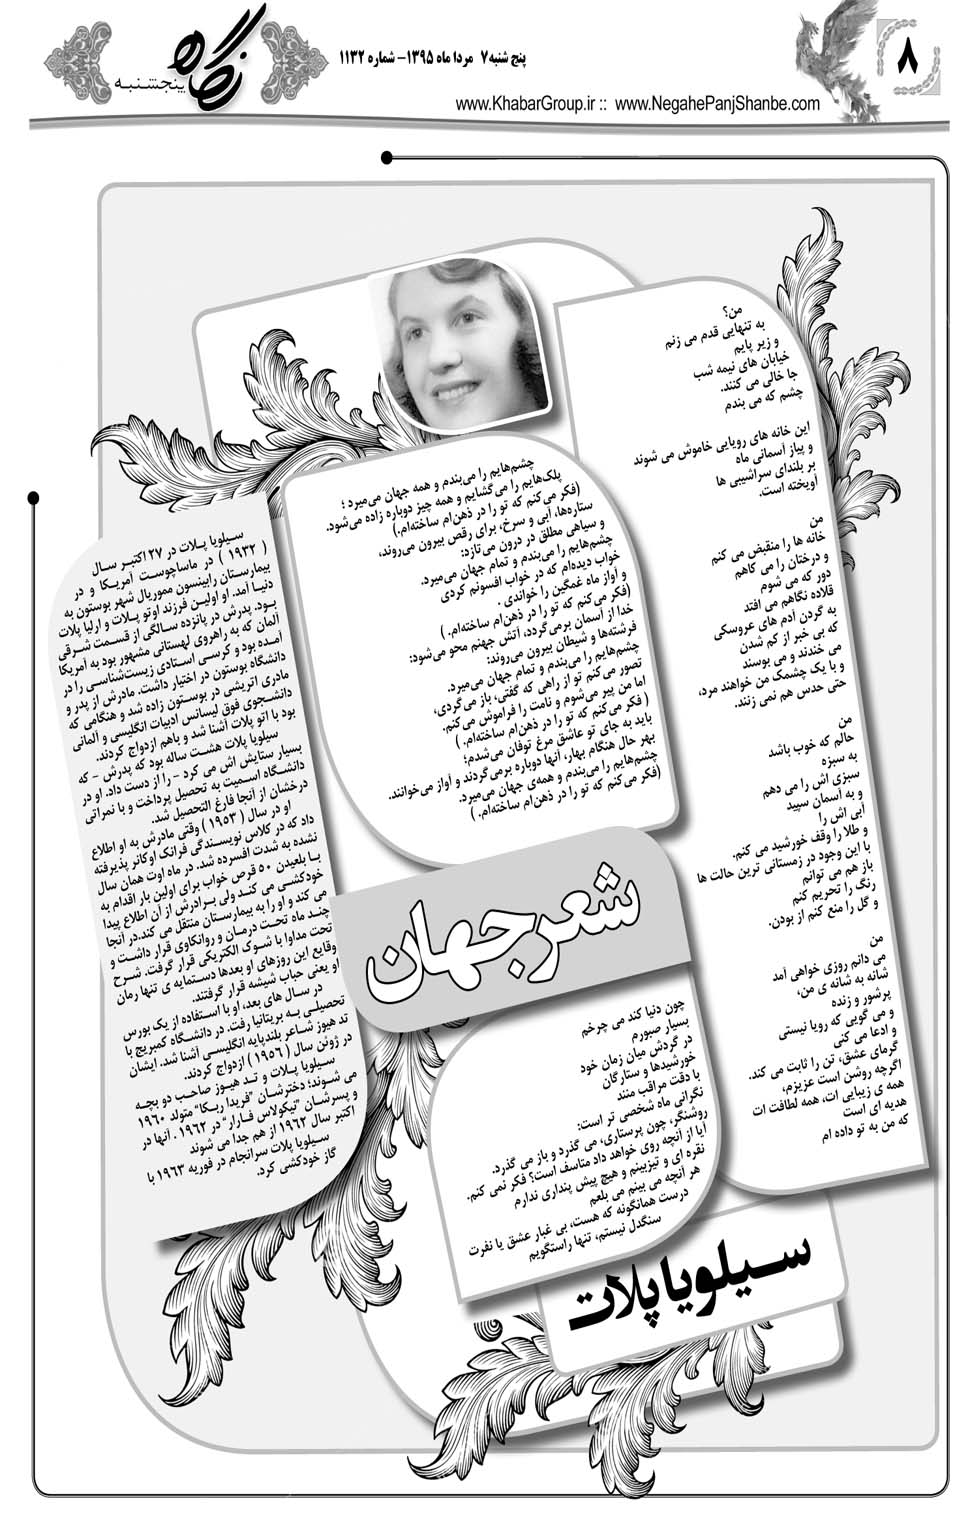 ۸
پنج شنبه۷ مرداد ماه ۱۳۹۵- شماره ۱۱۳۲
www.KhabarGroup.ir :: www.NegahePanjShanbe.com
نگاه
پنجشنبه
من؟
به تنهایی قدم می زنم
و زیر پایم
خیابان های نیمه شب
جا خالی می کنند.
چشم که می بندم
این خانه های رویایی خاموش می شوند
و پیاز آسمانی ماه
بر بلندای سراشیبی ها
آویخته است.
من
خانه ها را منقبض می کنم
و درختان را می کاهم
دور که می شوم
قلاده نگاهم می افتد
به گردن آدم های عروسکی
که بی خبر از کم شدن
می خندند و می بوسند
و با یک چشمک من خواهند مرد،
حتی حدس هم نمی زنند.
من
حالم که خوب باشد
به سبزه
سبزی اش را می دهم
و به آسمان سپید
آبی اش را
و طلا را وقف خورشید می کنم.
با این وجود در زمستانی ترین حالت ها
باز هم می توانم
رنگ را تحریم کنم
و گل را منع کنم از بودن.
من
می دانم روزی خواهی آمد
شانه به شانه ی من،
پرشور و زنده
و می گویی که رویا نیستی
و ادعا می کنی
گرمای عشق، تن را ثابت می کند.
اگرچه روشن است عزیزم،
همه ی زیبایی ات، همه لطافت ات
هدیه ای است
که من به تو داده ام
چشم‌هایم را می‌بندم و همه جهان می‌میرد ؛
پلک‌هایم را می‌گشایم و همه چیز دوباره زاده می‌شود.
(فکر می‌کنم که تو را در ذهن‌ام ساخته‌ام.)
ستاره‌ها، آبی و سرخ، برای رقص بیرون می‌روند،
و سیاهی مطلق در درون می‌تازد:
چشم‌هایم را می‌بندم و تمام جهان می‌میرد.
خواب دیده‌ام که در خواب افسونم کردی
و آواز ماه غمگین را خواندی .
(فکر می‌کنم که تو را در ذهن‌ام ساخته‌ام. )
خدا از آسمان برمی‌گردد، آتش جهنم محو می‌شود:
فرشته‌ها و شیطان بیرون می‌روند:
چشم‌هایم را می‌بندم و تمام جهان می‌میرد.
تصور می‌کنم تو از راهی که گفتی، باز می‌گردی،
اما من پیر می‌شوم و نامت را فراموش می‌کنم.
( فکر می‌کنم که تو را در ذهن‌ام ساخته‌ام. )
باید به جای تو عاشق مرغ توفان می‌شدم؛
بهر حال هنگام بهار، آنها دوباره برمی‌گردند و آواز می‌خوانند.
چشم‌هایم را می‌بندم و همه‌ی جهان می‌میرد.
(فکر می‌کنم که تو را در ذهن‌ام ساخته‌ام. )
سیلویا پلات در ۲۷ اکتبر سال
( ۱۹۳۲ ) در ماساچوست آمریکا و در
بیمارستان رابینسون مموریال شهر بوستون به
دنیا آمد. او اولین فرزند اوتو پلات و ارلیا پلات
بود. پدرش در پانزده سالگی از قسمت شرقی
آلمان که به راهروی لهستانی مشهور بود به آمریکا
آمده بود و کرسی استادی زیست‌شناسی را در
دانشگاه بوستون در اختیار داشت. مادرش از پدر و
مادری اتریشی در بوستون زاده شد و هنگامی که
دانشجوی فوق لیسانس ادبیات انگلیسی و آلمانی
بود با اتو پلات آشنا شد و باهم ازدواج کردند.
سیلویا پلات هشت ساله بود که پدرش - که
بسیار ستایش اش می کرد - را از دست داد. او در
دانشگاه اسمیت به تحصیل پرداخت و با نمراتی
درخشان از آنجا فارغ التحصیل شد.
او در سال ( ۱۹۵۳ ) وقتی مادرش به او اطلاع
داد که در کلاس نویسندگی فرانک اوکانر پذیرفته
نشده به شدت افسرده شد. در ماه اوت همان سال
با بلعیدن ۵۰ قرص خواب برای اولین بار اقدام به
خودکشی می کند ولی برادرش از آن اطلاع پیدا
می کند و او را به بیمارستان منتقل می کند.در آنجا
چند ماه تحت درمان و روانکاوی قرار داشت و
تحت مداوا با شوک الکتریکی قرار گرفت. شرح
وقایع این روزهای او بعدها دستمایه ی تنها رمان
او یعنی حباب شیشه قرار گرفتند.
در سال های بعد، او با استفاده از یک بورس
تحصیلی به بریتانیا رفت. در دانشگاه کمبریج با
تد هیوز شاعر بلندپایه انگلیسی آشنا شد. ایشان
در ژوئن سال ( ۱۹۵۶ ) ازدواج کردند.
سیلویا پلات و تد هیوز صاحب دو بچه
می شوند؛ دخترشان "فریدا ربکا" متولد ۱۹۶۰
و پسرشان "نیکولاس فارار" در ۱۹۶۲ . آنها در
اکتبر سال ۱۹۶۲ از هم جدا می شوند
سیلویا پلات سرانجام در فوریه ۱۹۶۳ با
گاز خودکشی کرد.
شعر جهان
چون دنیا کند می چرخم
بسیار صبورم
در گردش میان زمان خود
خورشیدها و ستارگان
با دقت مراقب منند
نگرانی ماه شخصی تر است:
روشنگر، چون پرستاری، می گذرد و باز می گذرد.
آیا از آنچه روی خواهد داد متاسف است؟ فکر نمی کنم.
نقره ای و تیزبینم و هیچ پیش پنداری ندارم
هر آنچه می بینم می بلعم
درست همانگونه که هست، بی غبار عشق یا نفرت
سنگدل نیستم، تنها راستگویم
سیلویا پلات